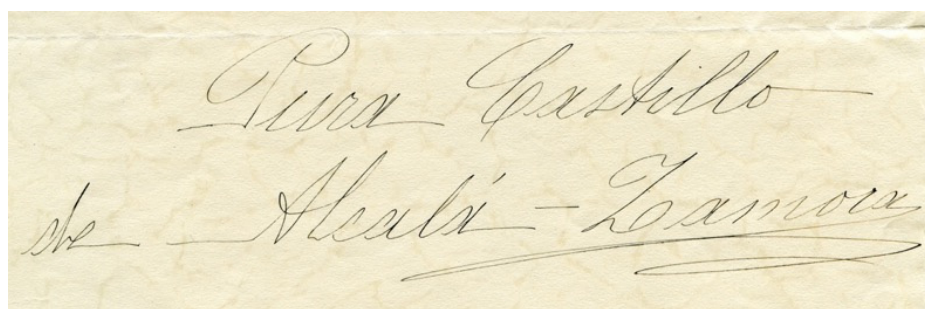 Pura Castillo
de Alcalá-Zamora